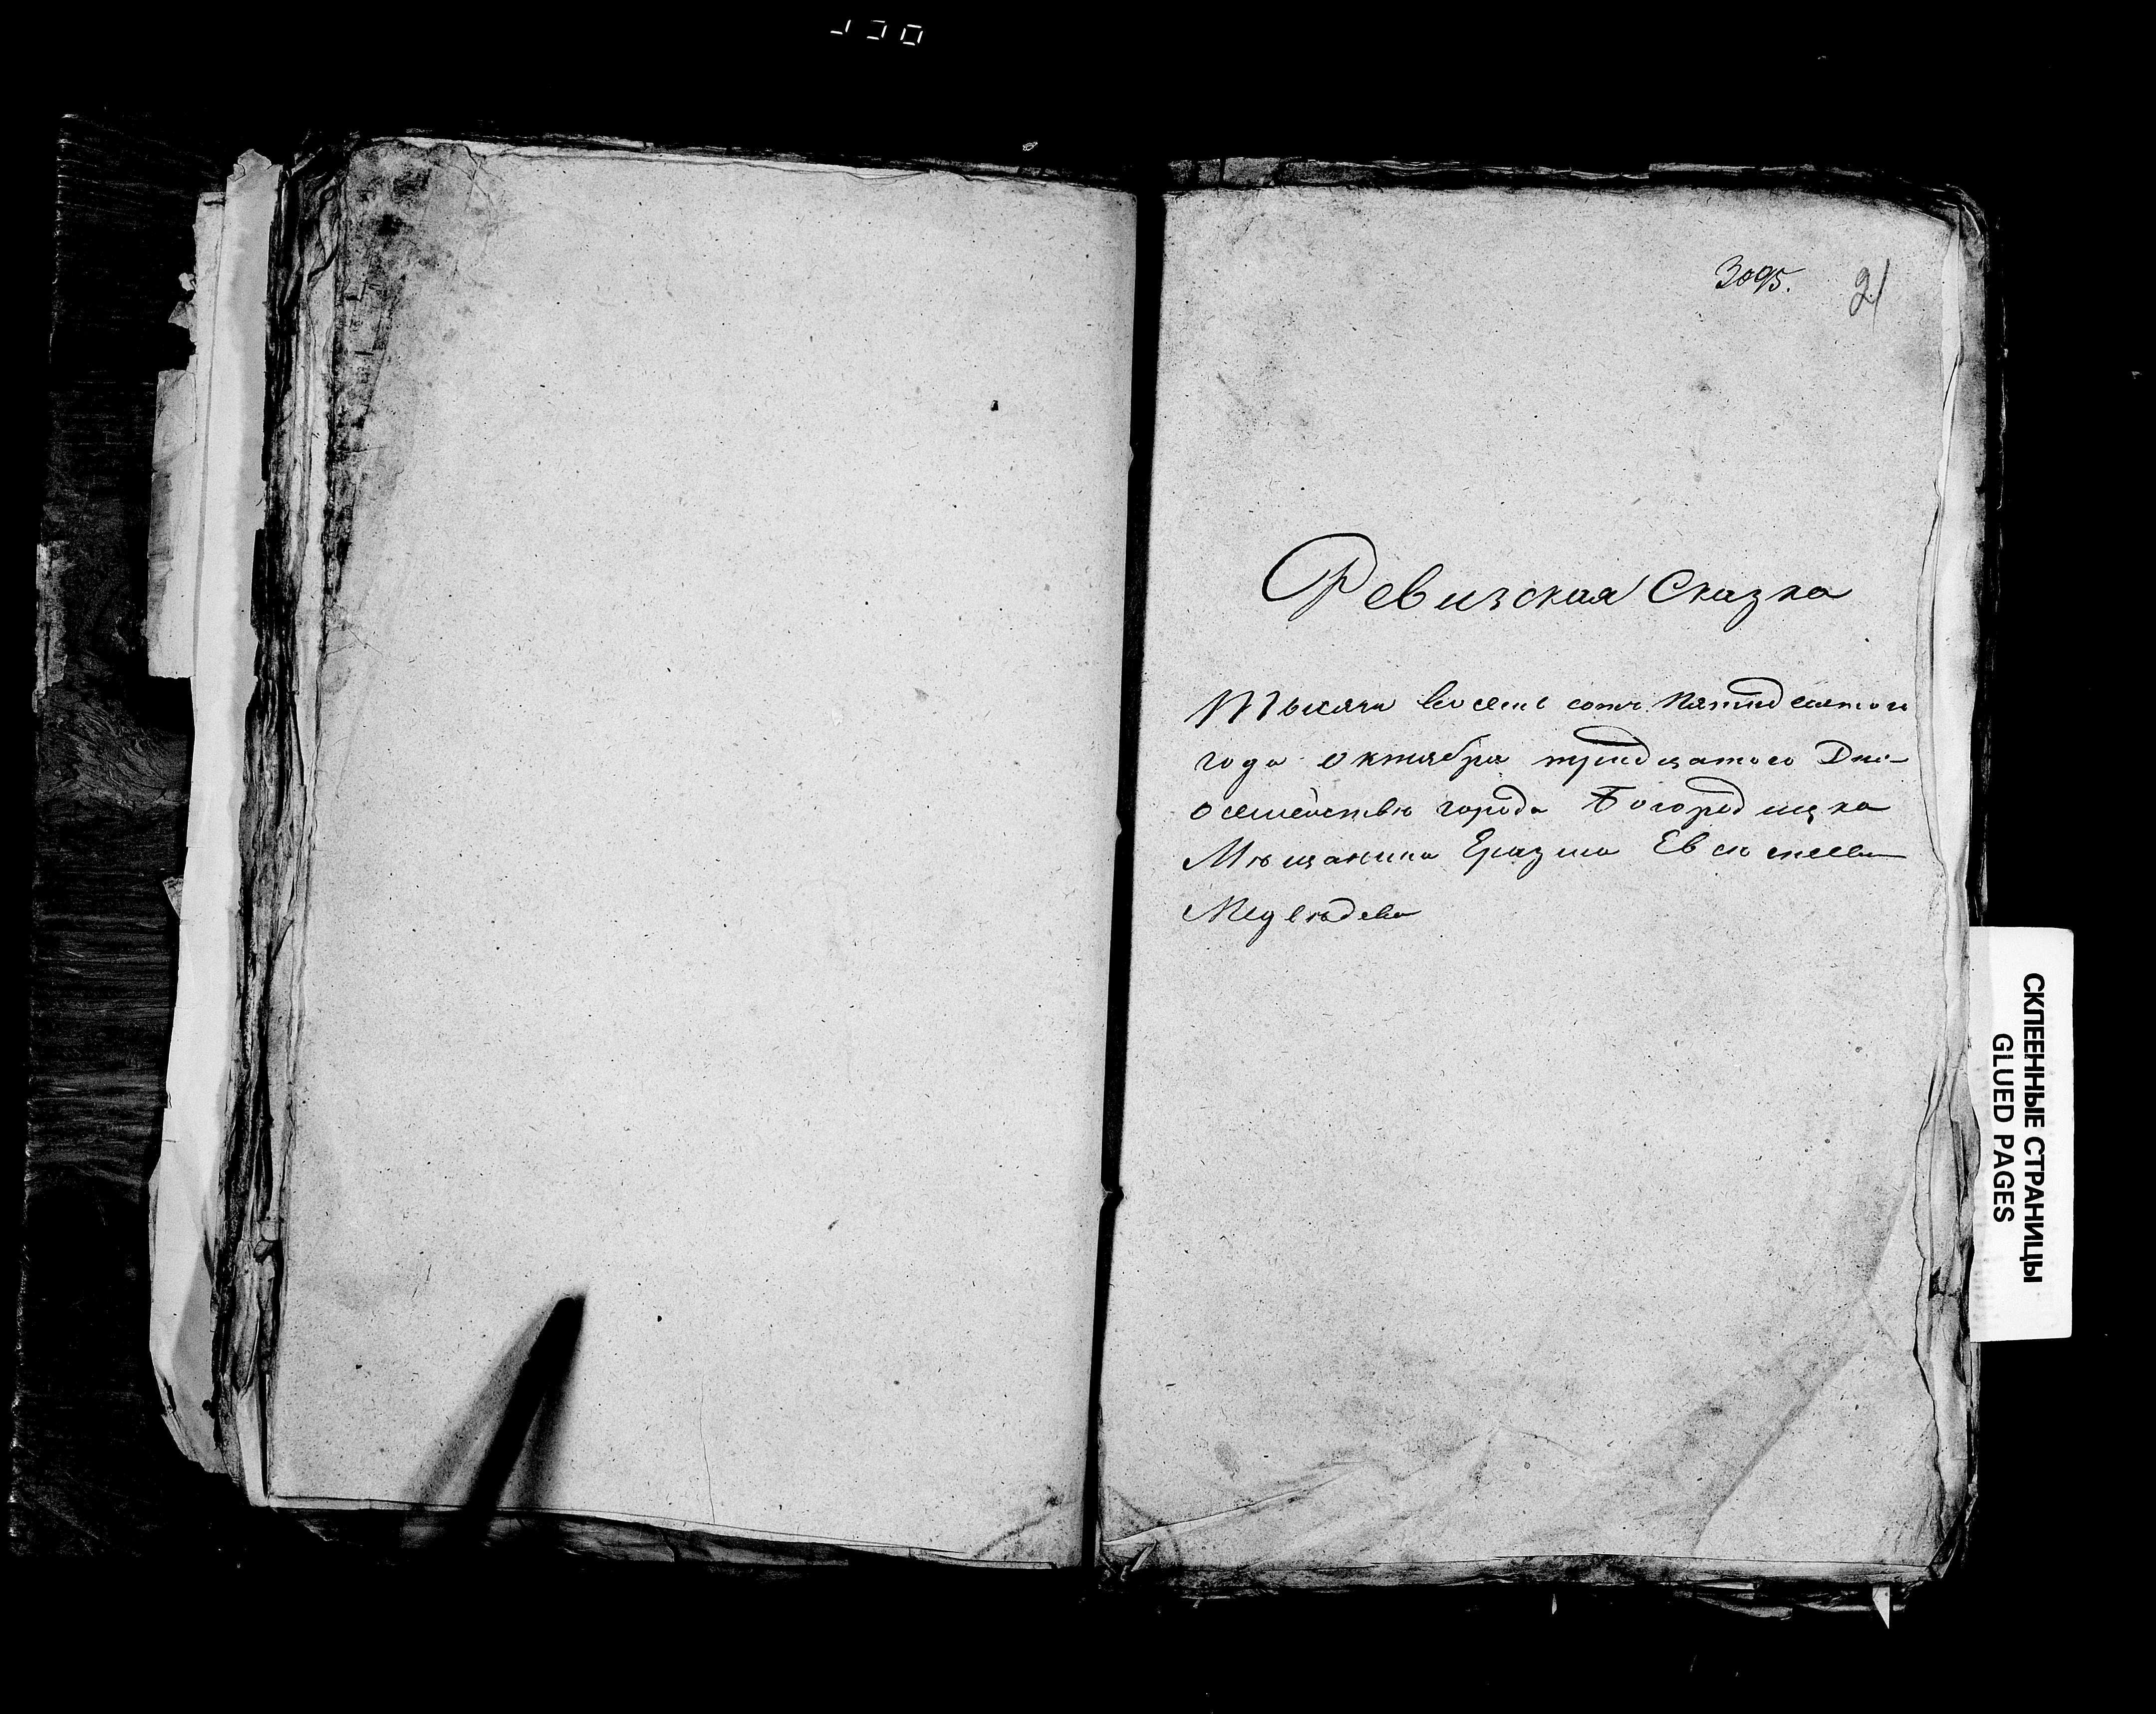 3095.
21
Ревизская Сказка
Тысяча восемь сотъ Пятидесятого
года октября тридцатого Дня
о семействѣ города Богородицка
Мѣщанина Еразма
Медвѣдева
СКЛЕЕННЫЕ СТРАНИЦЫ
GLUED PAGES